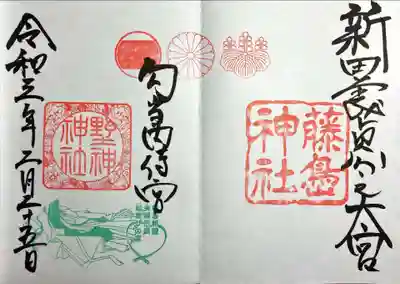 新田義貞公之大宮
藤島神社
勾当内侍宮
野神神社
令和五年二月二十五日